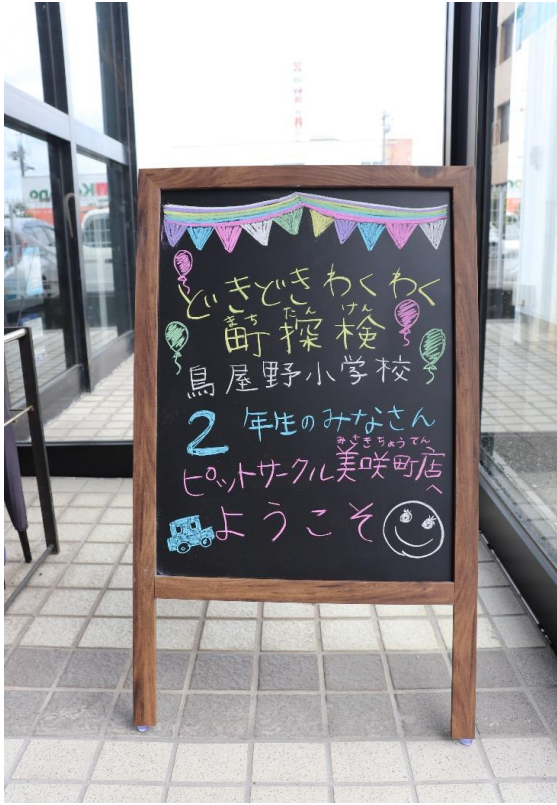 どきどきわくわく
まち たん けん
町探検
鳥屋野小学校
2年生のみなさん
みさきちょうてん
ピットサークル美咲町店へ
ようこそ